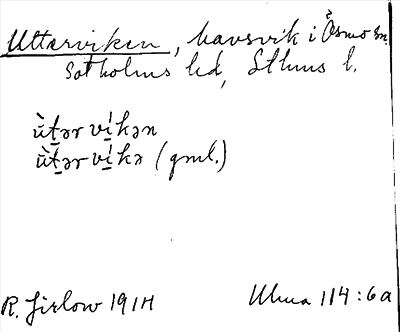 Utterviken, havsvik i Ösmo sn.
Sotholms hd, Sthms l.
ù̀tər víkən
ù̀tər víkə (gml.)
R. Jirlow 1914
Ulma 114:6a